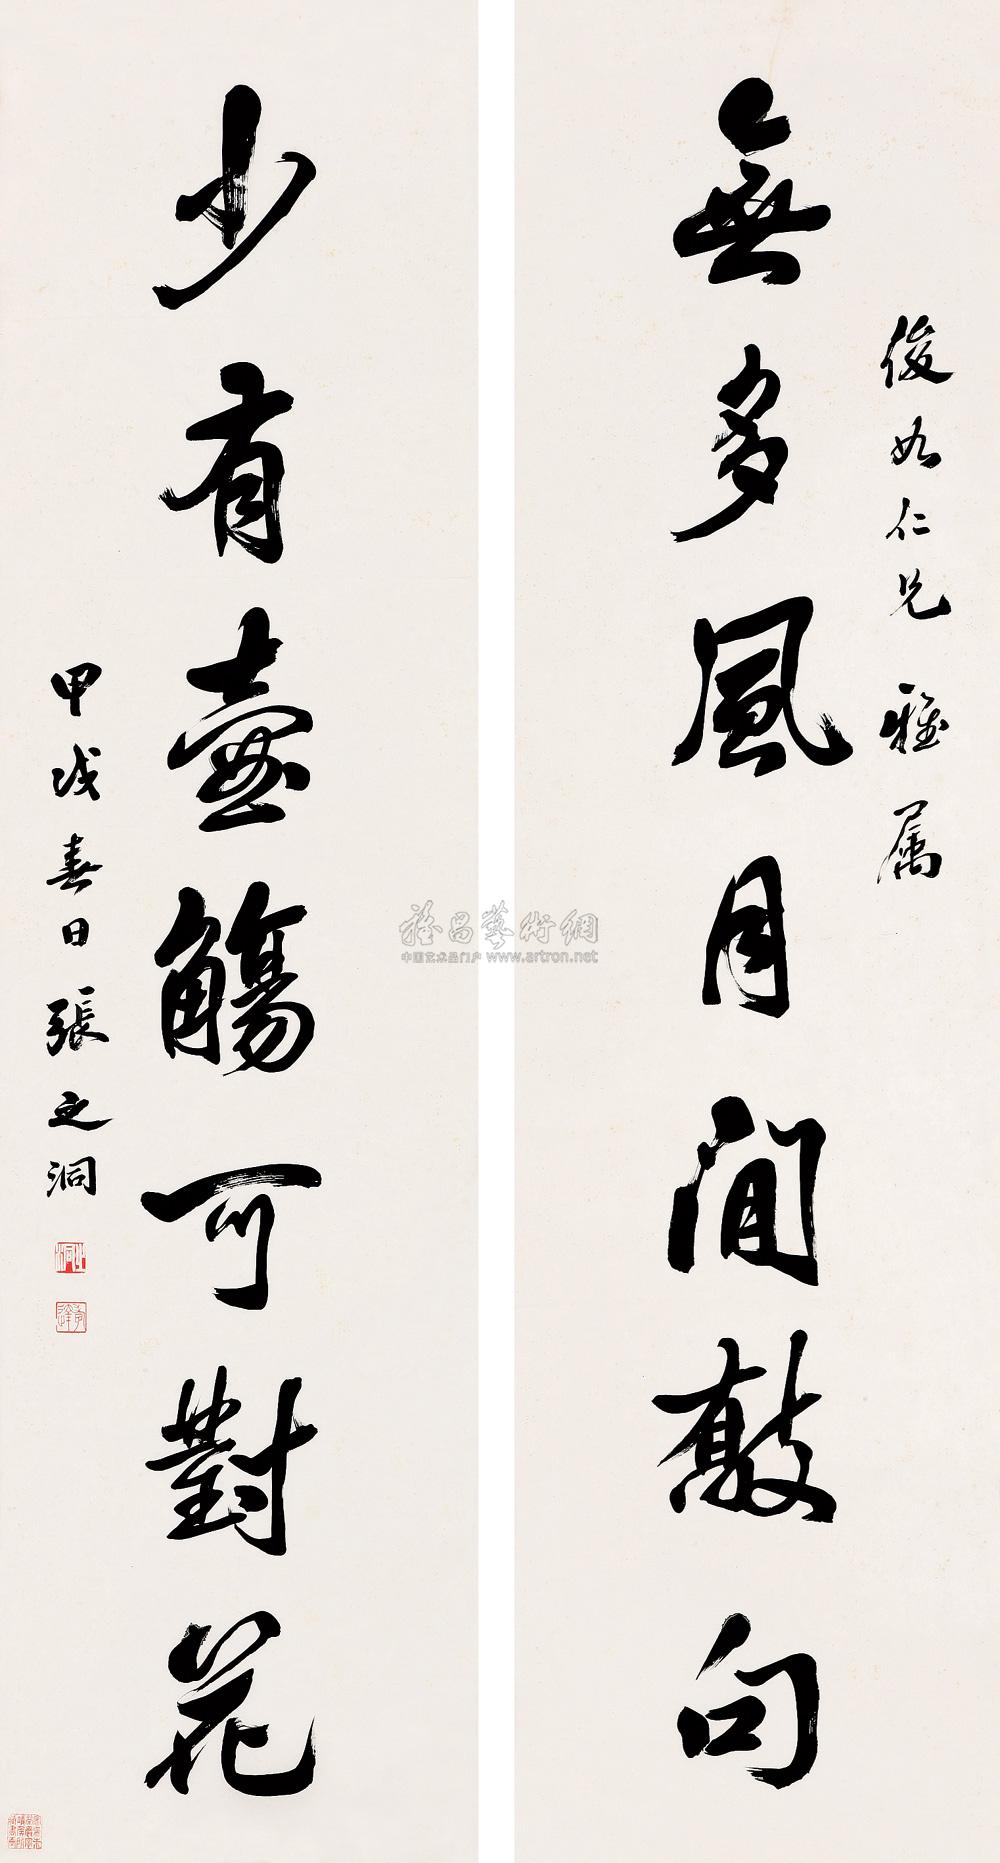 俊如仁兄雅属
無多風月閒敲句
少有壺觴可對花
甲戌春日張之洞
雅昌藝術網
中国艺术品门户 www.artron.net